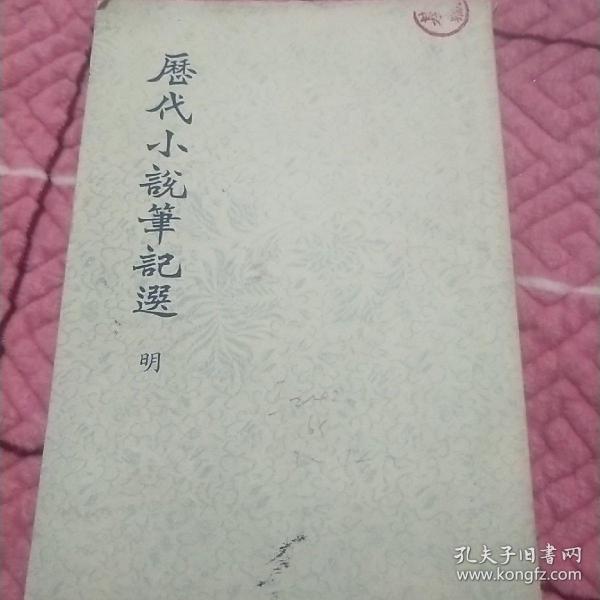 歷代小說筆記選
明
孔夫子旧書网
www.kongfz.com